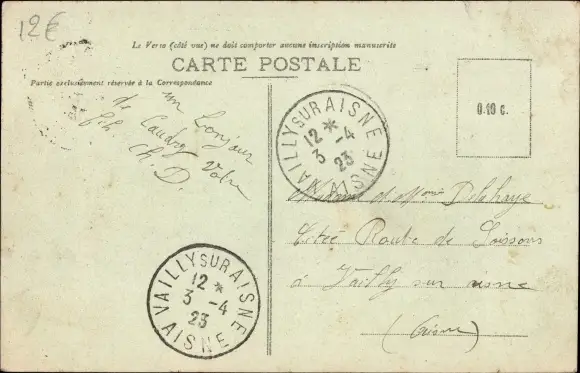 12€
Le Verso (côté vue) ne doit comporter aucune inscription manuscrite
CARTE POSTALE
Partie exclusivement réservée à la Correspondance
un bonjour
de Caudry Votre
fils Ch. D.
VAILLY SUR AISNE
12 *
3 -4
23
AISNE
0.10 c.
et Mme Delahaye
Cité Route de Soissons
à Vailly sur aisne
(Aisne)
VAILLY SUR AISNE
12 *
3 -4
23
AISNE